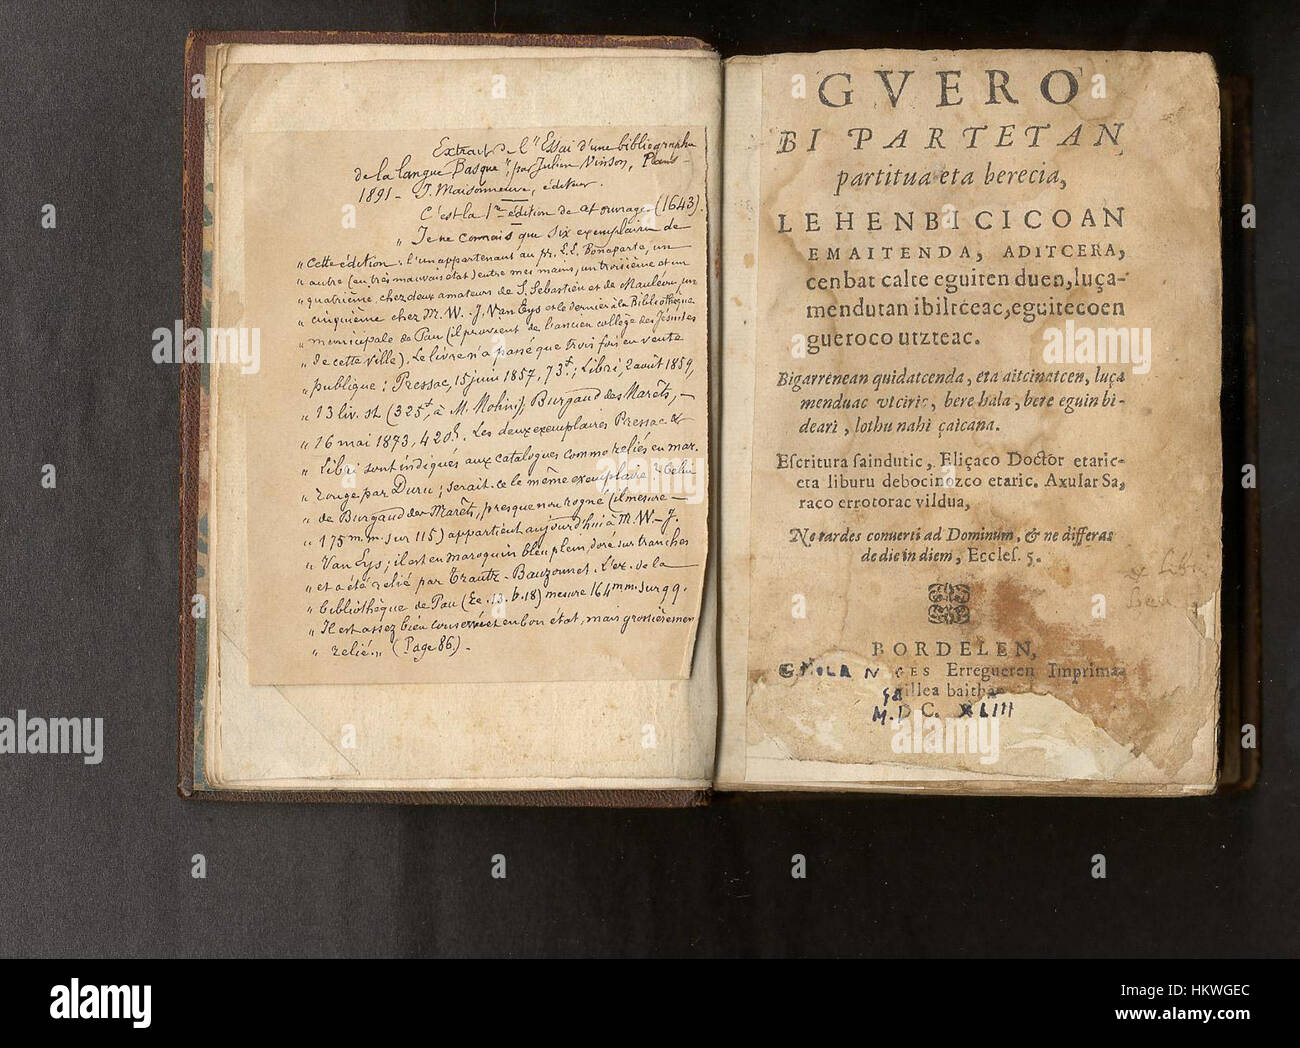 Extrait de l'"Essai d'une bibliographie
de la langue Basque", par Julien Vinson, Paris -
1891 - J. Maisonneuve, éditeur.
C'est la 1re édition de cet ouvrage (1643).
" Je ne connais que six exemplaires de
" cette édition : l'un appartenant au pr. L.L. Bonaparte, un
" autre (en très mauvais état) entre mes mains, un troisième et un
" quatrième chez deux amateurs de S. Sébastien et de Mauléon, un
" cinquième chez M. W. J. Van Eys et le dernier à la Bibliothèque
" municipale de Pau (il provient de l'ancien collège des Jésuites
" de cette ville). Le livre n'a passé que trois fois en vente
" publique : Pressac, 15 juin 1857, 73f; Libri, 2 août 1859,
" 13 liv. st (325f, à M. Molini); Burgaud des Marêts, -
" 16 mai 1873, 420f. Les deux exemplaires Pressac &
" Libri sont indiqués aux catalogues comme reliés en mar.
" rouge par Duru; serait-ce le même exemplaire? Celui
" de Burgaud des Marêts, presque non rogné (il mesure -
" 175 mm. sur 115) appartient aujourd'hui à M. W. J.
" Van Eys; il est en maroquin bleu plein, doré sur tranches
" et a été relié par Trautz-Bauzonnet. L'ex. de la
" bibliothèque de Pau (Ee. 13. b. 18) mesure 164mm. sur 99.
" Il est assez bien conservé et en bon état, mais grossièremen
" relié." (Page 86) -
GVERO
BI PARTETAN
partitua eta berecia,
LEHENBICICOAN
EMAITENDA, ADITCERA,
cenbat calte eguiten duen, luça-
mendutan ibiltceac, eguitecoen
gueroco utzteac.
Bigarrenean quidatcenda, eta aitcinatcen, luça
menduac vtciric, bere hala, bere eguin bi-
deari, lothu nahi çaicana.
Escritura saindutic, Eliçaco Doctor etaric-
eta liburu debocinozco etaric, Axular Sa,
raco errotorac vildua,
Ne tardes conuerti ad Dominum, & ne differas
de die in diem, Eccles. 5.
BORDELEN,
G. MILANGES Erregueren Imprima-
çaillea baitha
M.DC. XLIII
alamy
Image ID: HKWGEC
www.alamy.com